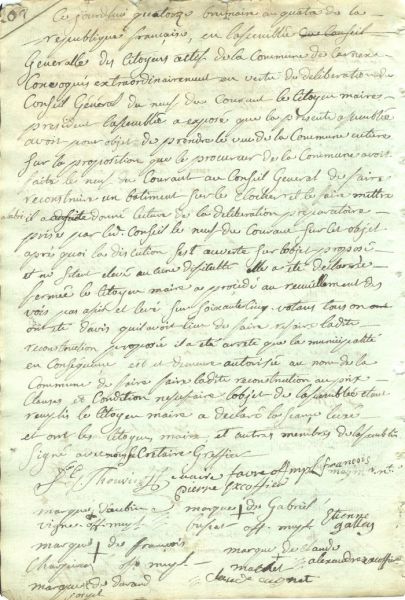 107
Ce jourdhui quatorze brumaire an quatre de la
republique francaise, en lassemblee du Conseil
Generalle des Citoyens actif de la Commune de
Convoqués extraordinairement en vertu de deliberation du
Conseil General du neuf du Courant le Citoyen maire
president lassemblée a exposé que la presente assemblée
avoit pour objet de prendre le vœu de la Commune entiere
sur la proposition que le procureur de la Commune avoit
faitte le neuf du Courant au Conseil General de faire
reconstruire un batiment sur le Clocher et le faire mettre
il a donné lecture de la deliberation preparatoire
prise par le Conseil le neuf du Courant sur cet objet
apres quoi la discution sest ouverte sur lobjet proposé
et ne setant elevé aucune difficulté elle a été declarée
fermée le Citoyen maire a procedé au recueillement des
voix par assit et levé sur soixante cinq votans tous on
ont eté davis quil avoit lieu de faire refaire ladite
reconstruction proposée il a eté arreté que la municipalité
en Consequence est et demeure autorisée au nom de la
Commune de faire faire ladite reconstruction au prix
Clauses et Condition necessaire lobjet de lassemblée etant
remplis le Citoyen maire a declaré la seance levée
et ont les Citoyens maire et autres membres de lassemblée
signé avec Secretaire Greffier
maire favre off mpl françois
pierre excoffier
marque marque de Gabriel
off. mupl off. mupl Etienne
gallay
marque de françois marque de claude
off. mupl alexandre excoffier
marque de claude